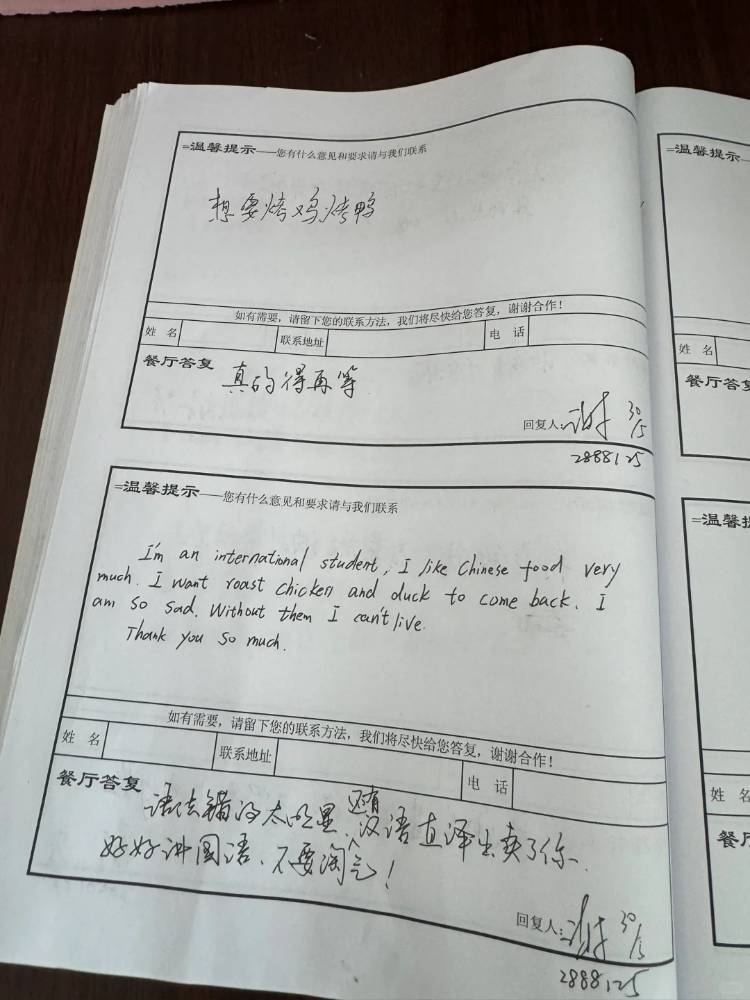 =温馨提示——您有什么意见和要求请与我们联系
想要烤鸡烤鸭
如有需要，请留下您的联系方法，我们将尽快给您答复，谢谢合作！
姓 名 联系地址 电 话
餐厅答复 真的得再等
回复人： 30/5
2888125
=温馨提示——您有什么意见和要求请与我们联系
I'm an international student, I like Chinese food very
much. I want roast chicken and duck to come back. I
am so sad. Without them I can't live.
Thank you so much.
如有需要，请留下您的联系方法，我们将尽快给您答复，谢谢合作！
姓 名 联系地址 电 话
餐厅答复 语法错的太明显、还有汉语直译出卖了你、
好好讲国语、不要淘气！
回复人： 30/5
2888125
=温馨提示—
姓 名
餐厅答复
=温馨提
姓 名
餐厅